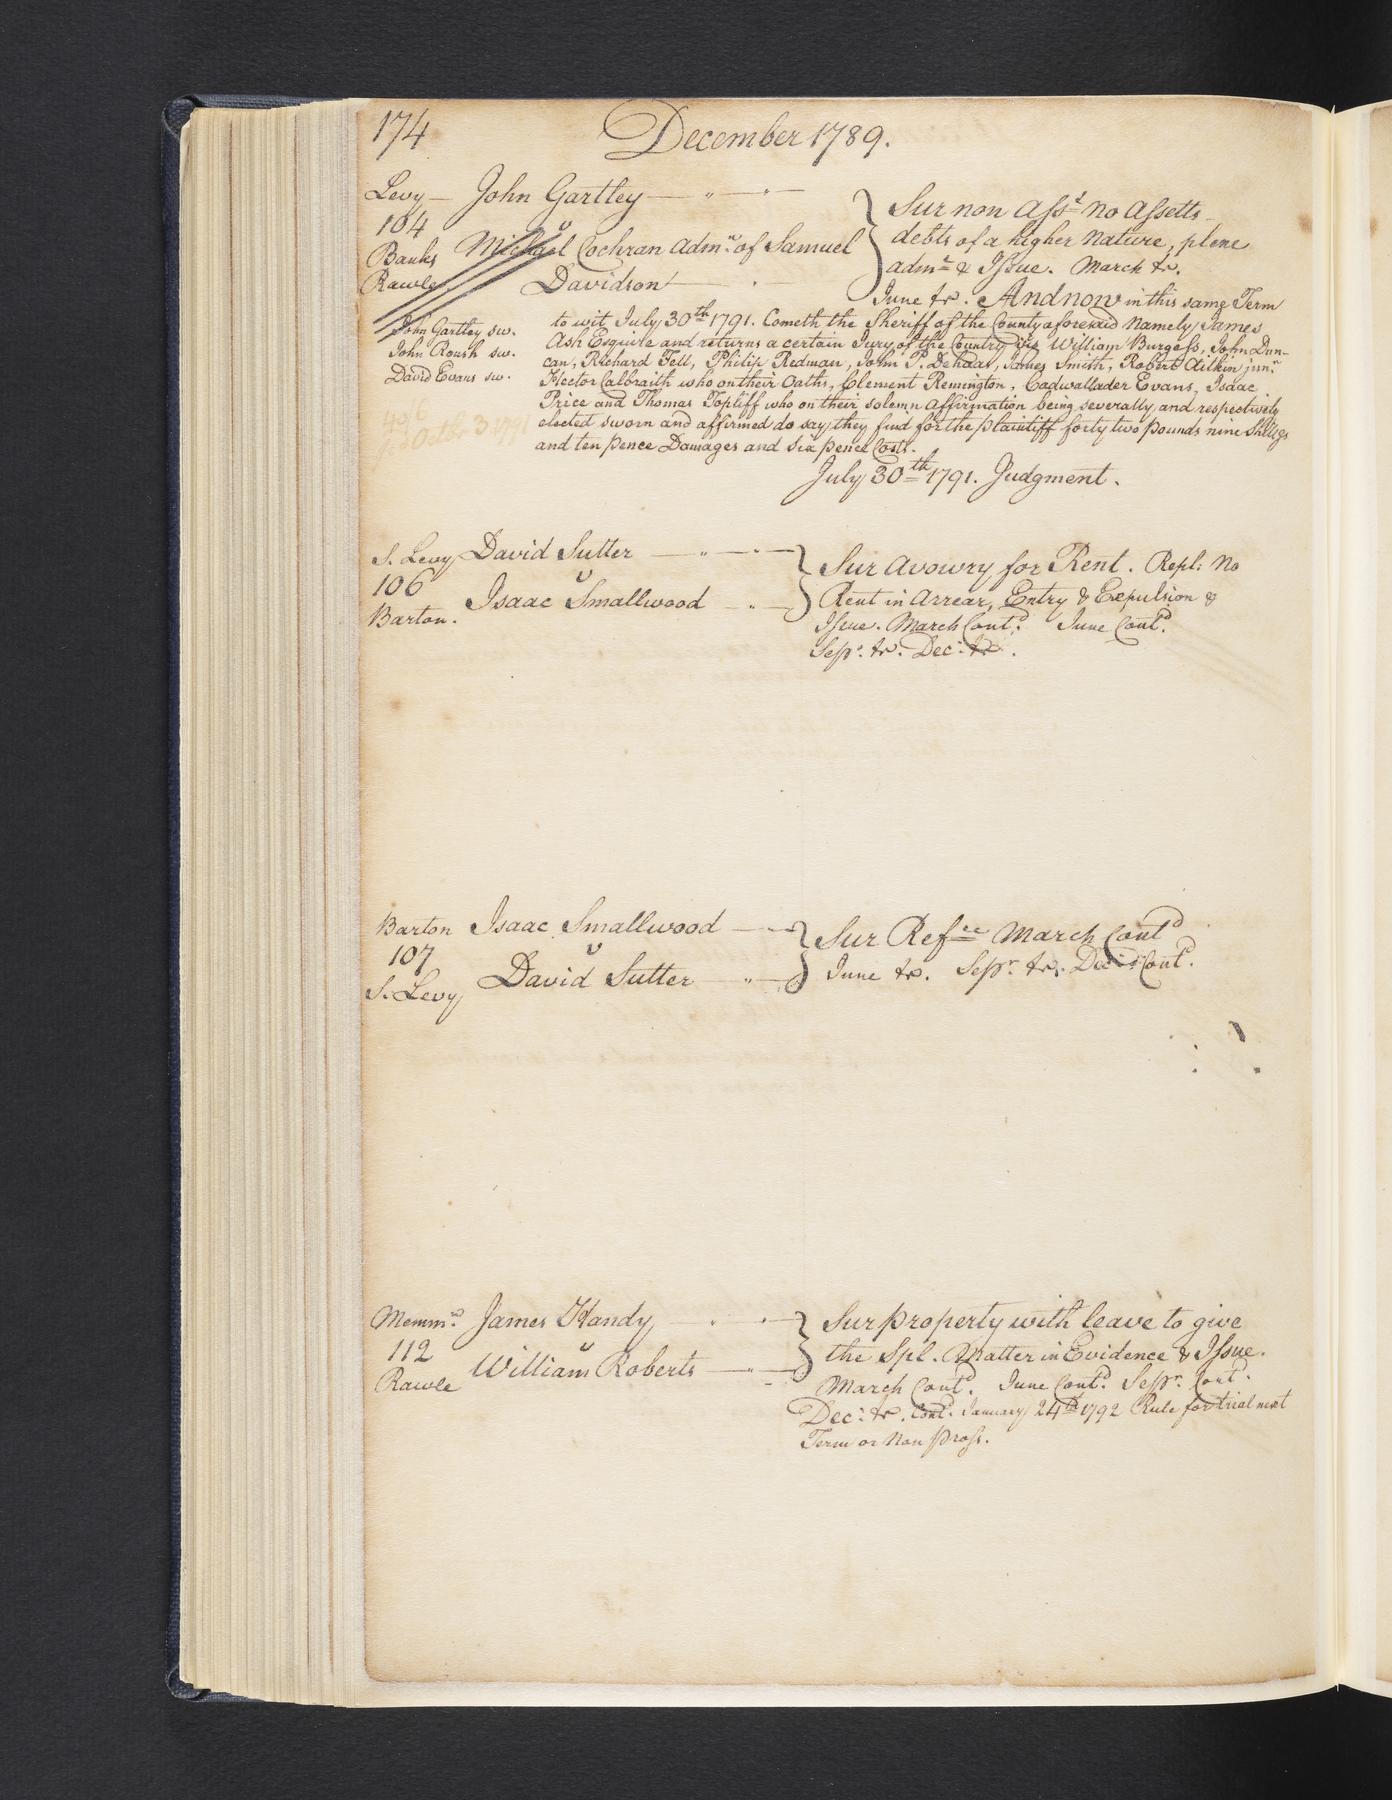 174
December 1789.
Levy — John Gartley
104 v
Banks Michael Cochran Admr. of Samuel
Rawle Davidson
Sur non Asst. no Assetts
debts of a higher Nature, plene
admt. & Issue. March tr.
June tr. And now in this same Term
John Gartley sw.
John Roush sw.
David Evans sw.
to wit July 30th. 1791. Cometh the Sheriff of the County aforesaid Namely James
Ash Esquire and returns a certain Jury of the Country viz William Burgess, John Dun-
can, Richard Fell, Philip Redman, John P. Dehaas, James Smith, Robert Aitkin junr.
Hector Calbraith who on their Oaths, Clement Remington, Cadwallader Evans, Isaac
Price and Thomas Topliff who on their solemn Affirmation being severally and respectively
elected sworn and affirmed do say they find for the plaintiff forty two pounds nine Shillgs
and ten pence Damages and six pence Costs.
July 30th. 1791. Judgment.
S. Levy David Sutter
106 v
Barton. Isaac Smallwood
Sur Avowry for Rent. Repl: No
Rent in Arrear, Entry & Expulsion &
Issue. March Contd. June Contd.
Sepr. tr. Dec: tr.
Barton Isaac Smallwood
107 v
S. Levy David Sutter
Sur Refce March Contd
June tr. Sepr. tr. Dec: Contd.
Memmd. James Handy
112 v
Rawle William Roberts
Sur property with leave to give
the Spl. Matter in Evidence & Issue.
March Contd. June Contd. Sepr. Contd.
Dec: tr. Contd. January 24th 1792 Rule for trial next
Term or Non Pross.